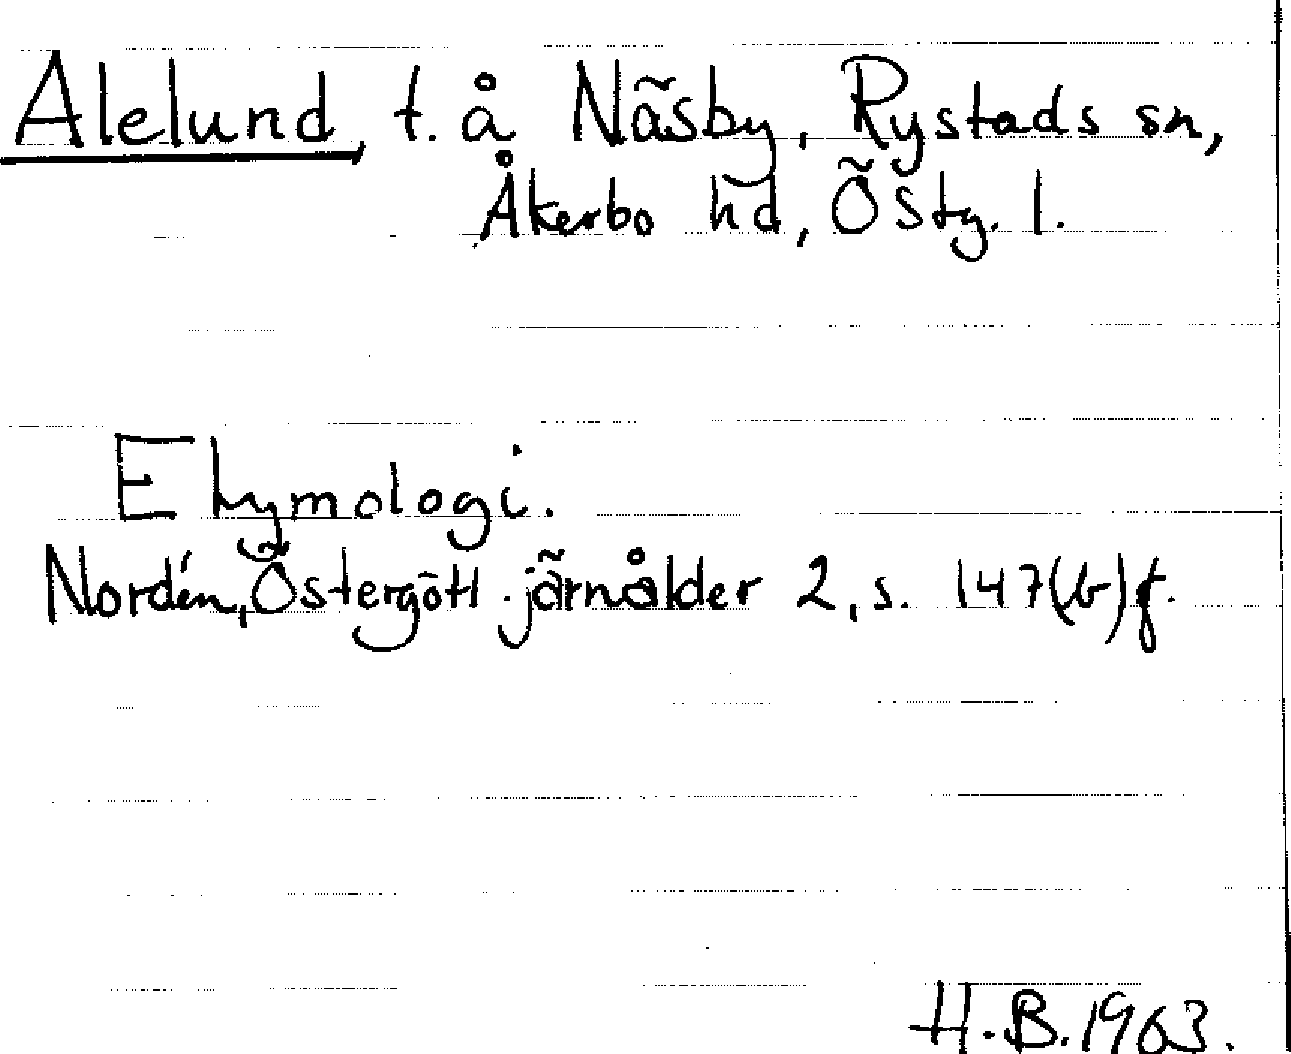 Alelund, t. å Näsby, Rystads sn,
Åkerbo hd, Östg. l.
Etymologi.
Nordén, Östergötl. järnålder 2, s. 147(b)f.
H.B. 1963.